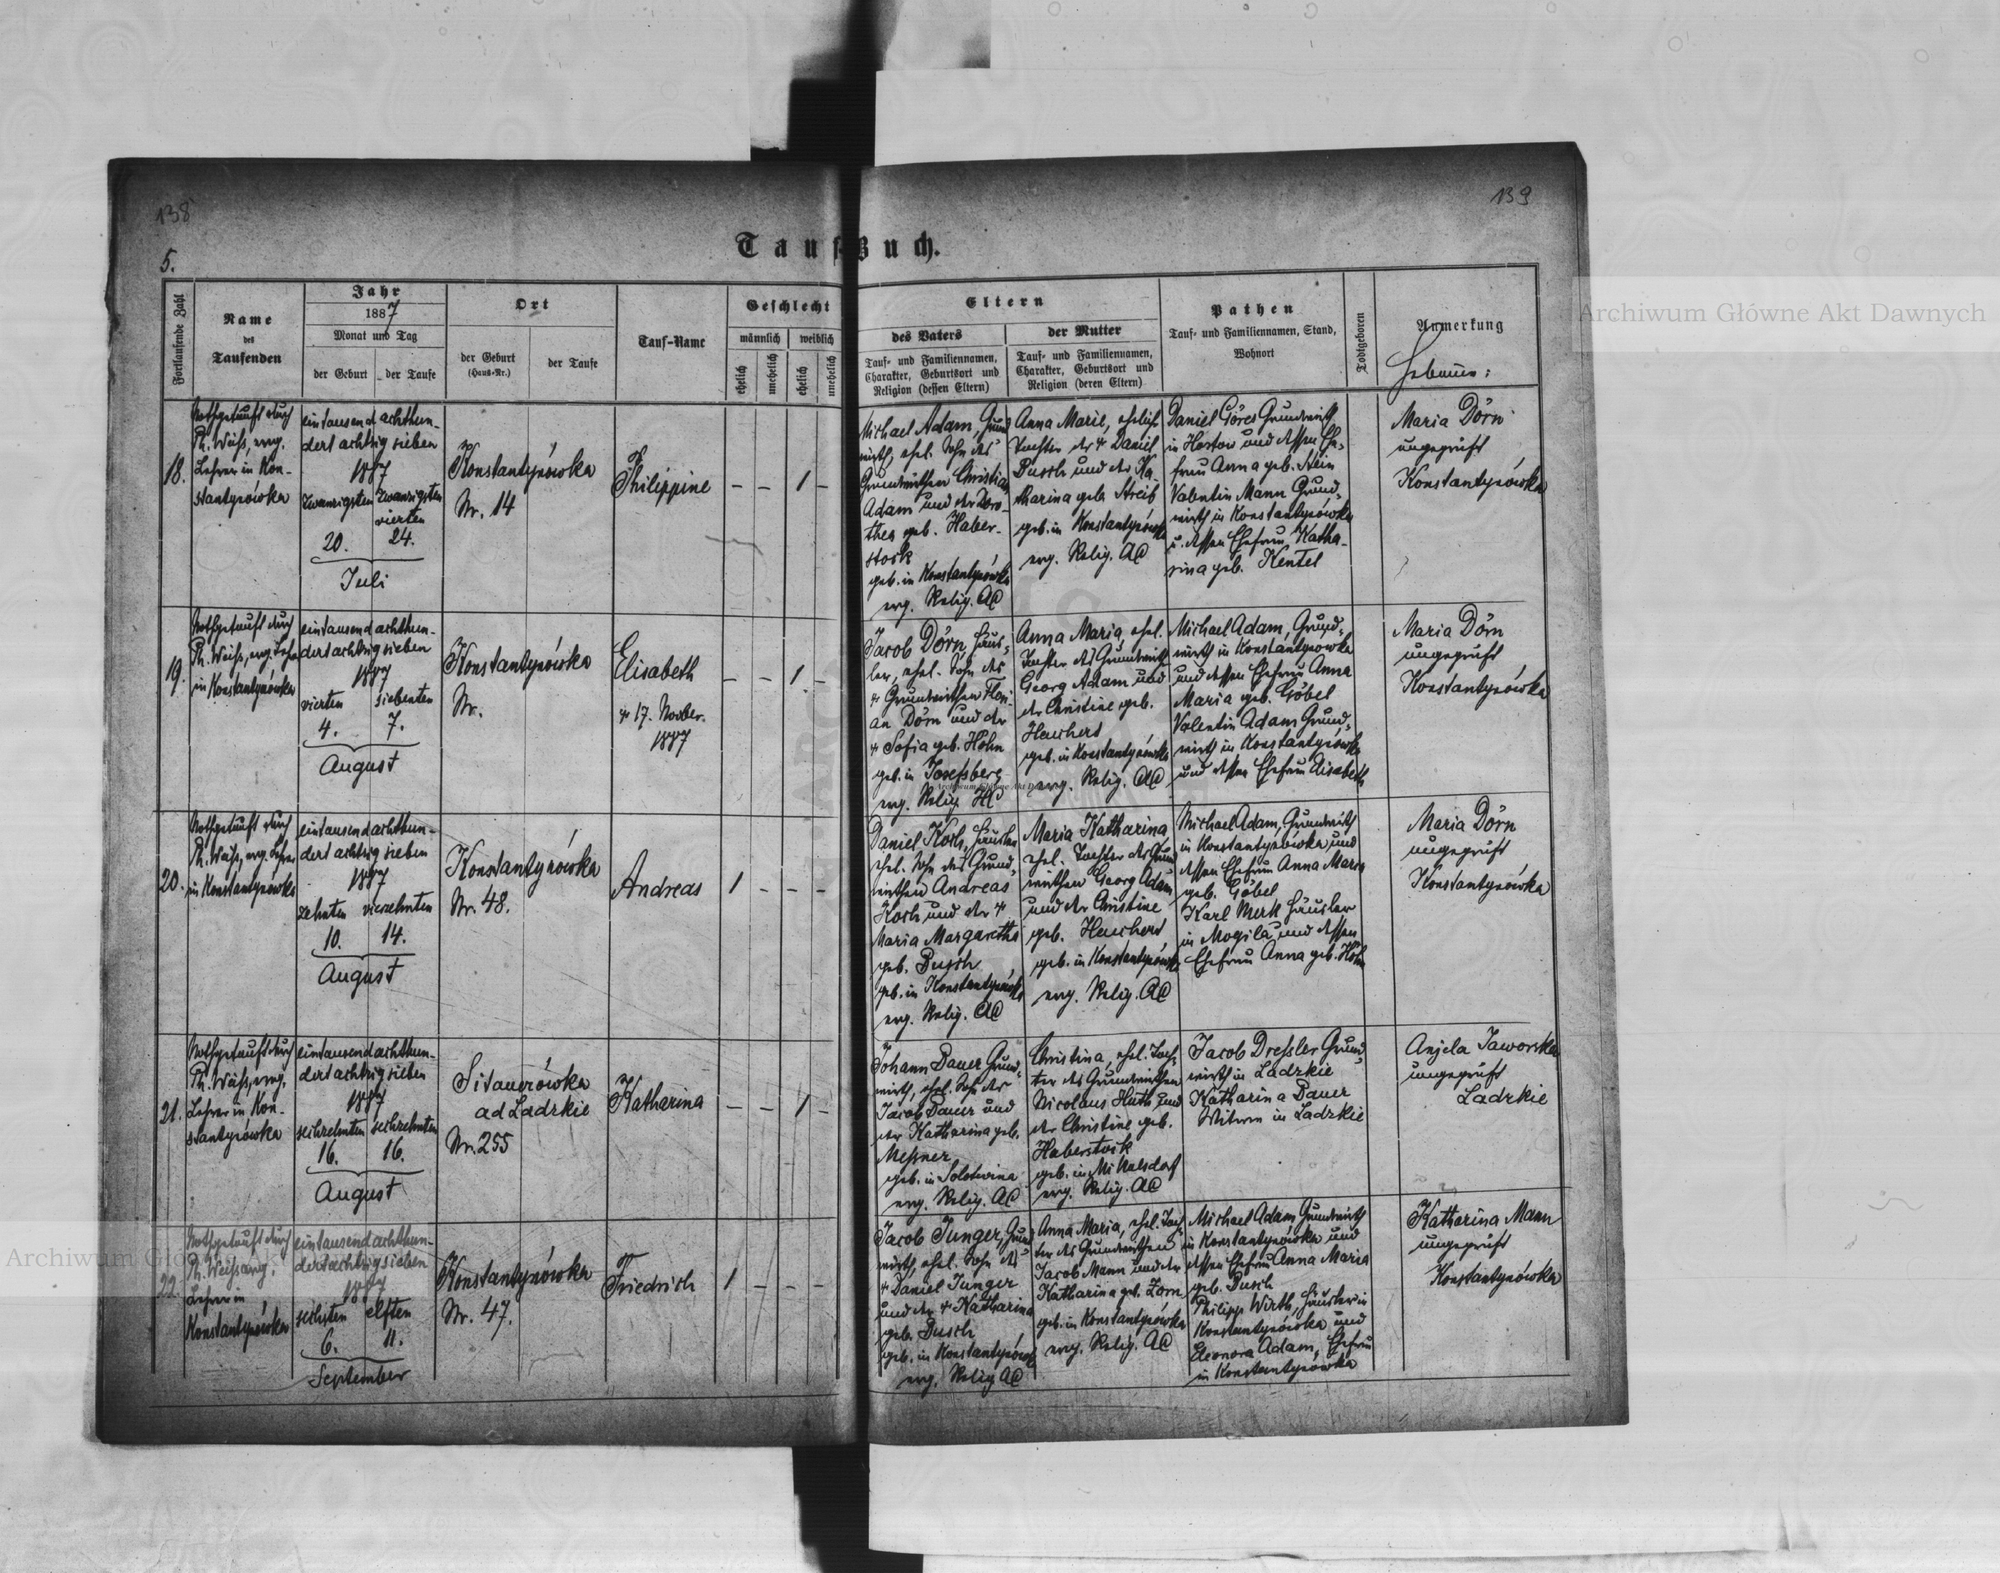 138
139
5.
Tauf-Buch.
Fortlaufende Zahl
Name
des
Taufenden
Jahr
1887
Monat und Tag
der Geburt
der Taufe
Ort
der Geburt
(Haus-Nr.)
der Taufe
Tauf-Name
Geschlecht
männlich
weiblich
ehelich
unehelich
ehelich
unehelich
Eltern
des Vaters
Tauf- und Familiennamen,
Charakter, Geburtsort und
Religion (dessen Eltern)
der Mutter
Tauf- und Familiennamen,
Charakter, Geburtsort und
Religion (deren Eltern)
Pathen
Tauf- und Familiennamen, Stand,
Wohnort
Todtgeboren
Anmerkung
Hebamme:
18.
Nothgetauft durch
Ph. Weiß, evg.
Lehrer in Kon-
stantynówka
eintausend achthun-
dert achtzig sieben
1887
zwanzigsten
zwanzigsten
vierten
20.
24.
Juli
Konstantynówka
Nr. 14
Philippine
– – 1 –
Michael Adam, Grund
wirth, ehel. Sohn des
Grundwirthen Christian
Adam und der Doro-
thea geb. Haber-
stock
geb. in Konstantynówka
evg. Relig. AC
Anna Marie, ehelich
Tochter des + Daniel
Busch und der Ka-
tharina geb. Streib
geb. in Konstantynówka
evg. Relig. AC
Daniel Göres Grundwirth
in Hartow und dessen Ehe-
frau Anna geb. Stein
Valentin Mann Grund-
wirth in Konstantynówka
u. dessen Ehefrau Katha-
rina geb. Kentel
Maria Dörn
ungeprüft
Konstantynówka
19.
Nothgetauft durch
Ph. Weiß, evg. Lehrer
in Konstantynówka
eintausend achthun-
dert achtzig sieben
1887
vierten
siebenten
4.
7.
August
Konstantynówka
Nr.
Elisabeth
+ 17. Novber.
1887
– – 1 –
Jacob Dörn Häus-
ler, ehel. Sohn des
+ Grundwirthen Flori-
an Dörn und der
+ Sofia geb. Höhn
geb. in Josefsberg
evg. Relig. HC
Anna Maria, ehel.
Tochter des Grundwirth
Georg Adam und
der Christine geb.
Heuchert
geb. in Konstantynówka
evg. Relig. AC
Michael Adam, Grund-
wirth in Konstantynowka
und dessen Ehefrau Anna
Maria geb. Göbel
Valentin Adam Grund-
wirth in Konstantynówka
und dessen Ehefrau Elisabeth
Maria Dörn
ungeprüft
Konstantynówka
20.
Nothgetauft durch
Ph. Weiß, evg. Lehrer
in Konstantynówka
eintausend achthun-
dert achtzig sieben
1887
zehnten
vierzehnten
10.
14.
August
Konstantynówka
Nr. 48.
Andreas
1 – – –
Daniel Koch, Häusler
ehel. Sohn des Grund-
wirthen Andreas
Koch und der +
Maria Margaretha
geb. Busch
geb. in Konstantynówka
evg. Relig. AC
Maria Katharina
ehel. Tochter des Grund
wirthen Georg Adam
und der Christine
geb. Heuchert
geb. in Konstantynówka
evg. Relig. AC
Michael Adam, Grundwirth
in Konstantynówka und
dessen Ehefrau Anna Maria
geb. Göbel
Karl Merk Häusler
in Mogila und dessen
Ehefrau Anna geb. Höhn
Maria Dörn
ungeprüft
Konstantynówka
21.
Nothgetauft durch
Ph. Weiß, evg.
Lehrer in Kon-
stantynówka
eintausend achthun-
dert achtzig sieben
1887
sechzehnten
sechzehnten
16.
16.
August
Sitauerówka
ad Ladzkie
Nr. 255
Katharina
– – 1 –
Johann Bauer Grund-
wirth, ehel. Sohn des
Jacob Bauer und
der Katharina geb.
Meßner
geb. in Solotwina
evg. Relig. AC
Christina, ehel. Toch-
ter des Grundwirthen
Nicolaus Huth und
der Christine geb.
Haberstock
geb. in Mikulsdorf
evg. Relig. AC
Jacob Dreßler Grund-
wirth in Ladzkie
Katharina Bauer
Witwe in Ladzkie
Anjela Jaworska
ungeprüft
Ladzkie
22.
Nothgetauft durch
Ph. Weiß evg.
Lehrer in
Konstantynówka
eintausend achthun-
dert achtzig sieben
1887
sechsten
elften
6.
11.
September
Konstantynówka
Nr. 47.
Friedrich
1 – – –
Jacob Junger, Grund
wirth, ehel. Sohn des
+ Daniel Junger
und der + Katharina
geb. Busch
geb. in Konstantynówka
evg. Relig AC
Anna Maria, ehel. Toch-
ter des Grundwirthen
Jacob Mann und der
Katharina geb. Zorn
geb. in Konstantynówka
evg. Relig. AC
Michael Adam Grundwirth
in Konstantynówka und
dessen Ehefrau Anna Maria
geb. Busch
Philipp Wirth, Häusler in
Konstantynówka und
Eleonora Adam, Ehefrau
in Konstantynówka
Katharina Mann
ungeprüft
Konstantynówka
Archiwum Główne Akt Dawnych
Archiwum Główne Akt